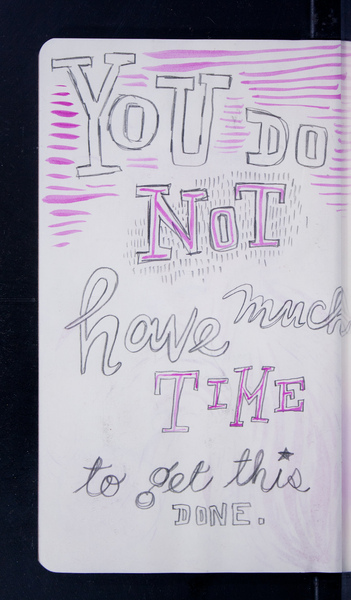 YOU DO
NOT
have much
TIME
to get this
DONE.